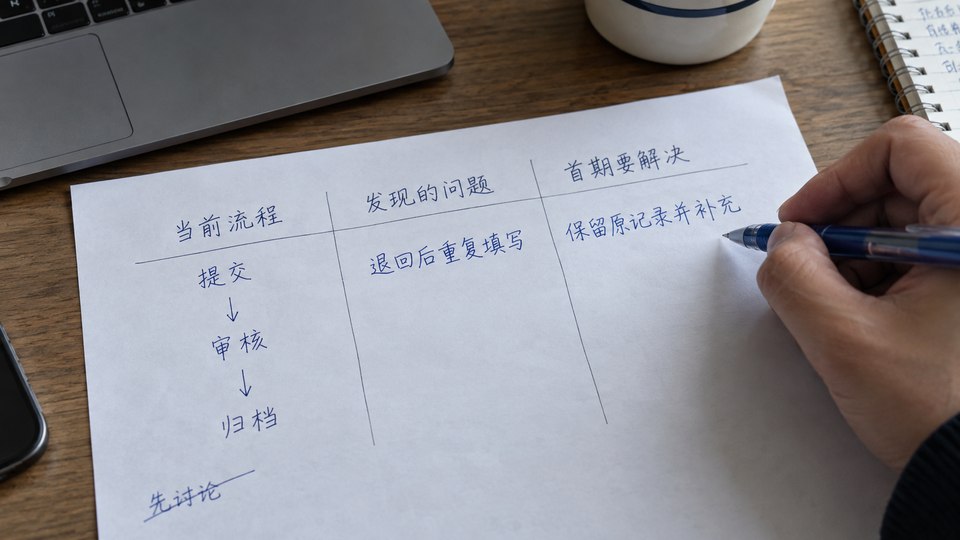 当前流程 发现的问题 首期要解决
提交 退回后重复填写 保留原记录并补充
↓
审核
↓
归档
先讨论